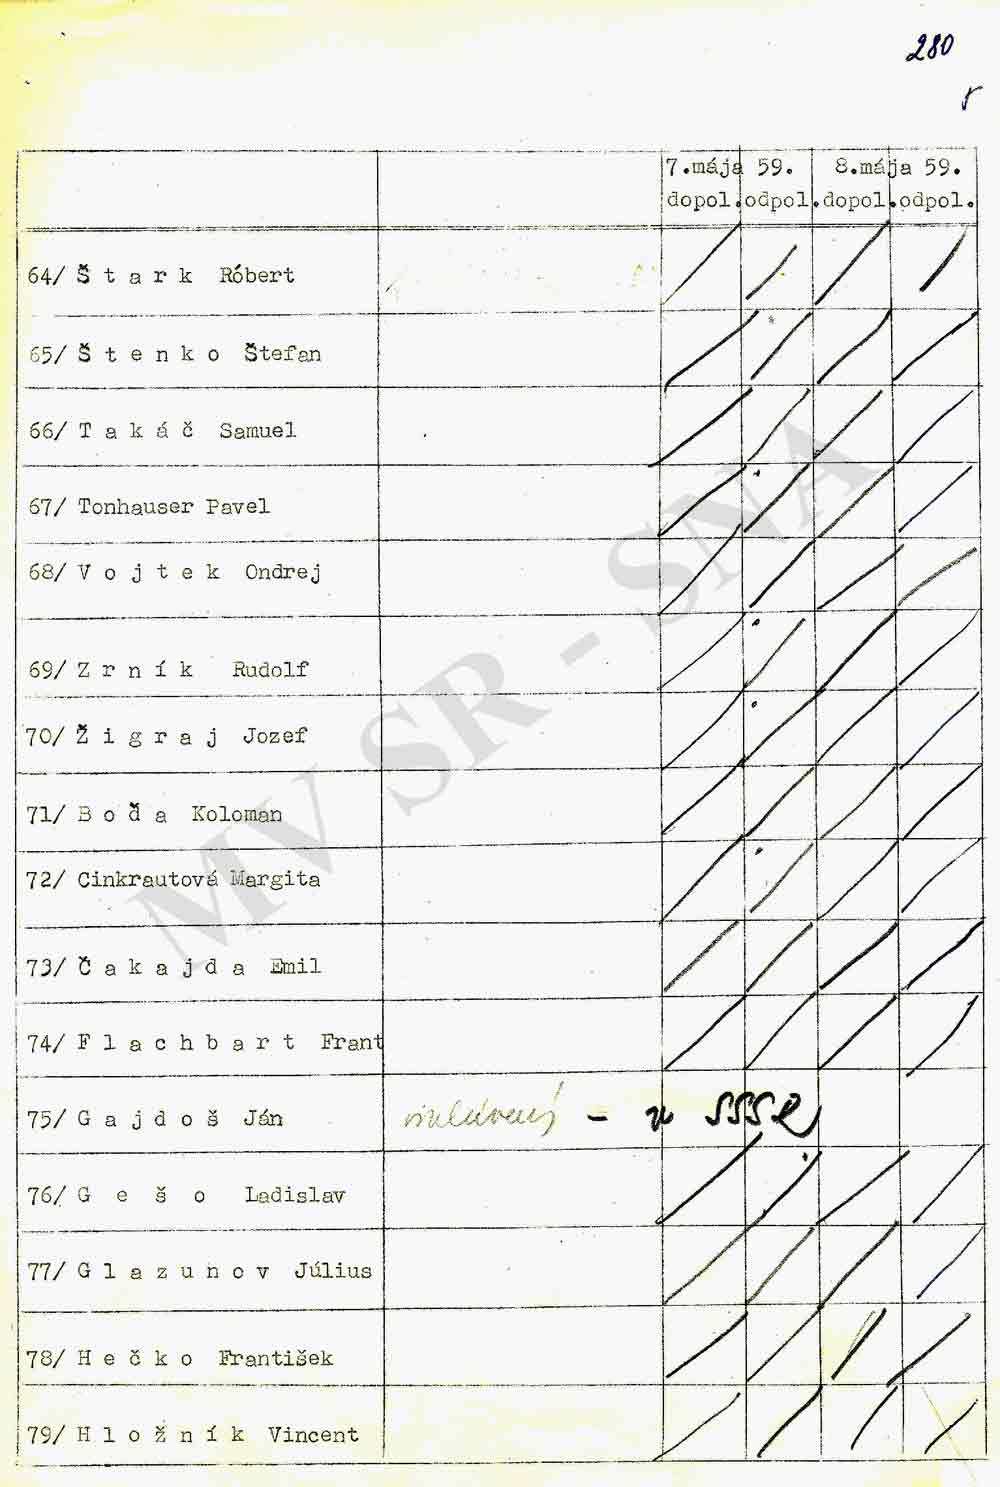 280
7.mája 59. 8.mája 59.
dopol. odpol. dopol. odpol.
64/ Š t a r k Róbert
65/ Š t e n k o Štefan
66/ T a k á č Samuel
67/ Tonhauser Pavel
68/ V o j t e k Ondrej
69/ Z r n í k Rudolf
70/ Ž i g r a j Jozef
71/ B o ď a Koloman
72/ Cinkrautová Margita
73/ Č a k a j d a Emil
74/ F l a c h b a r t Frant
75/ G a j d o š Ján – v SSSR
76/ G e š o Ladislav
77/ G l a z u n o v Július
78/ H e č k o František
79/ H l o ž n í k Vincent
MV SR - SNA